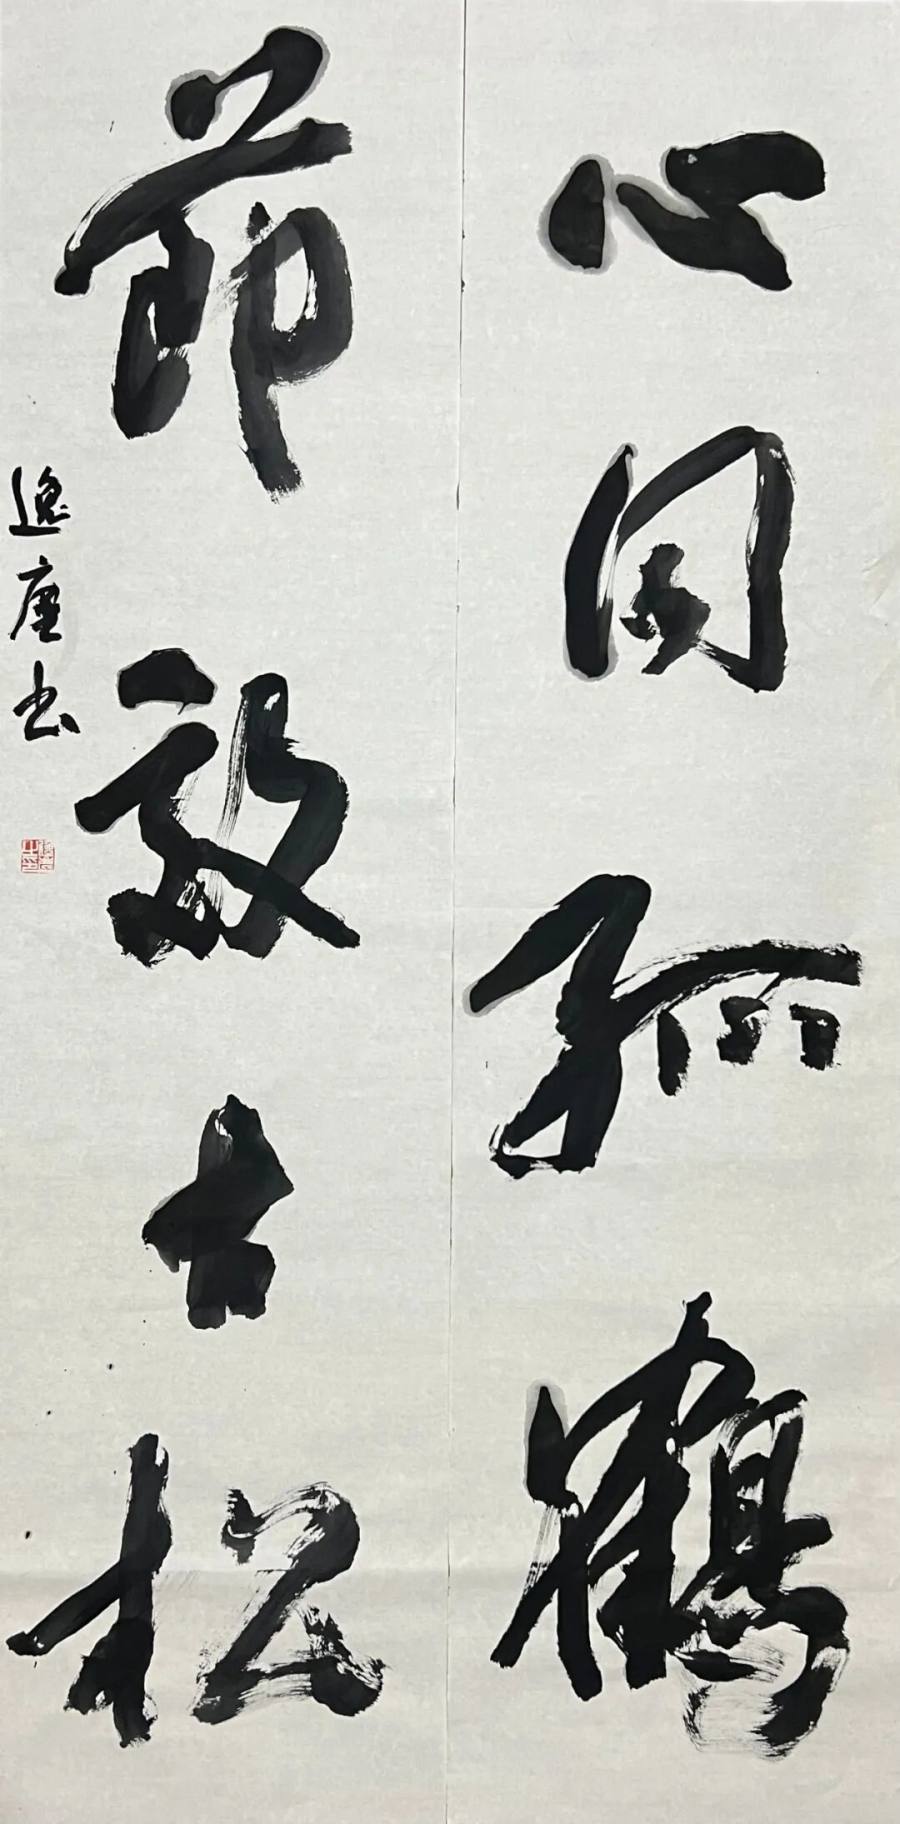 心同野鶴
節效古松
逸唐书